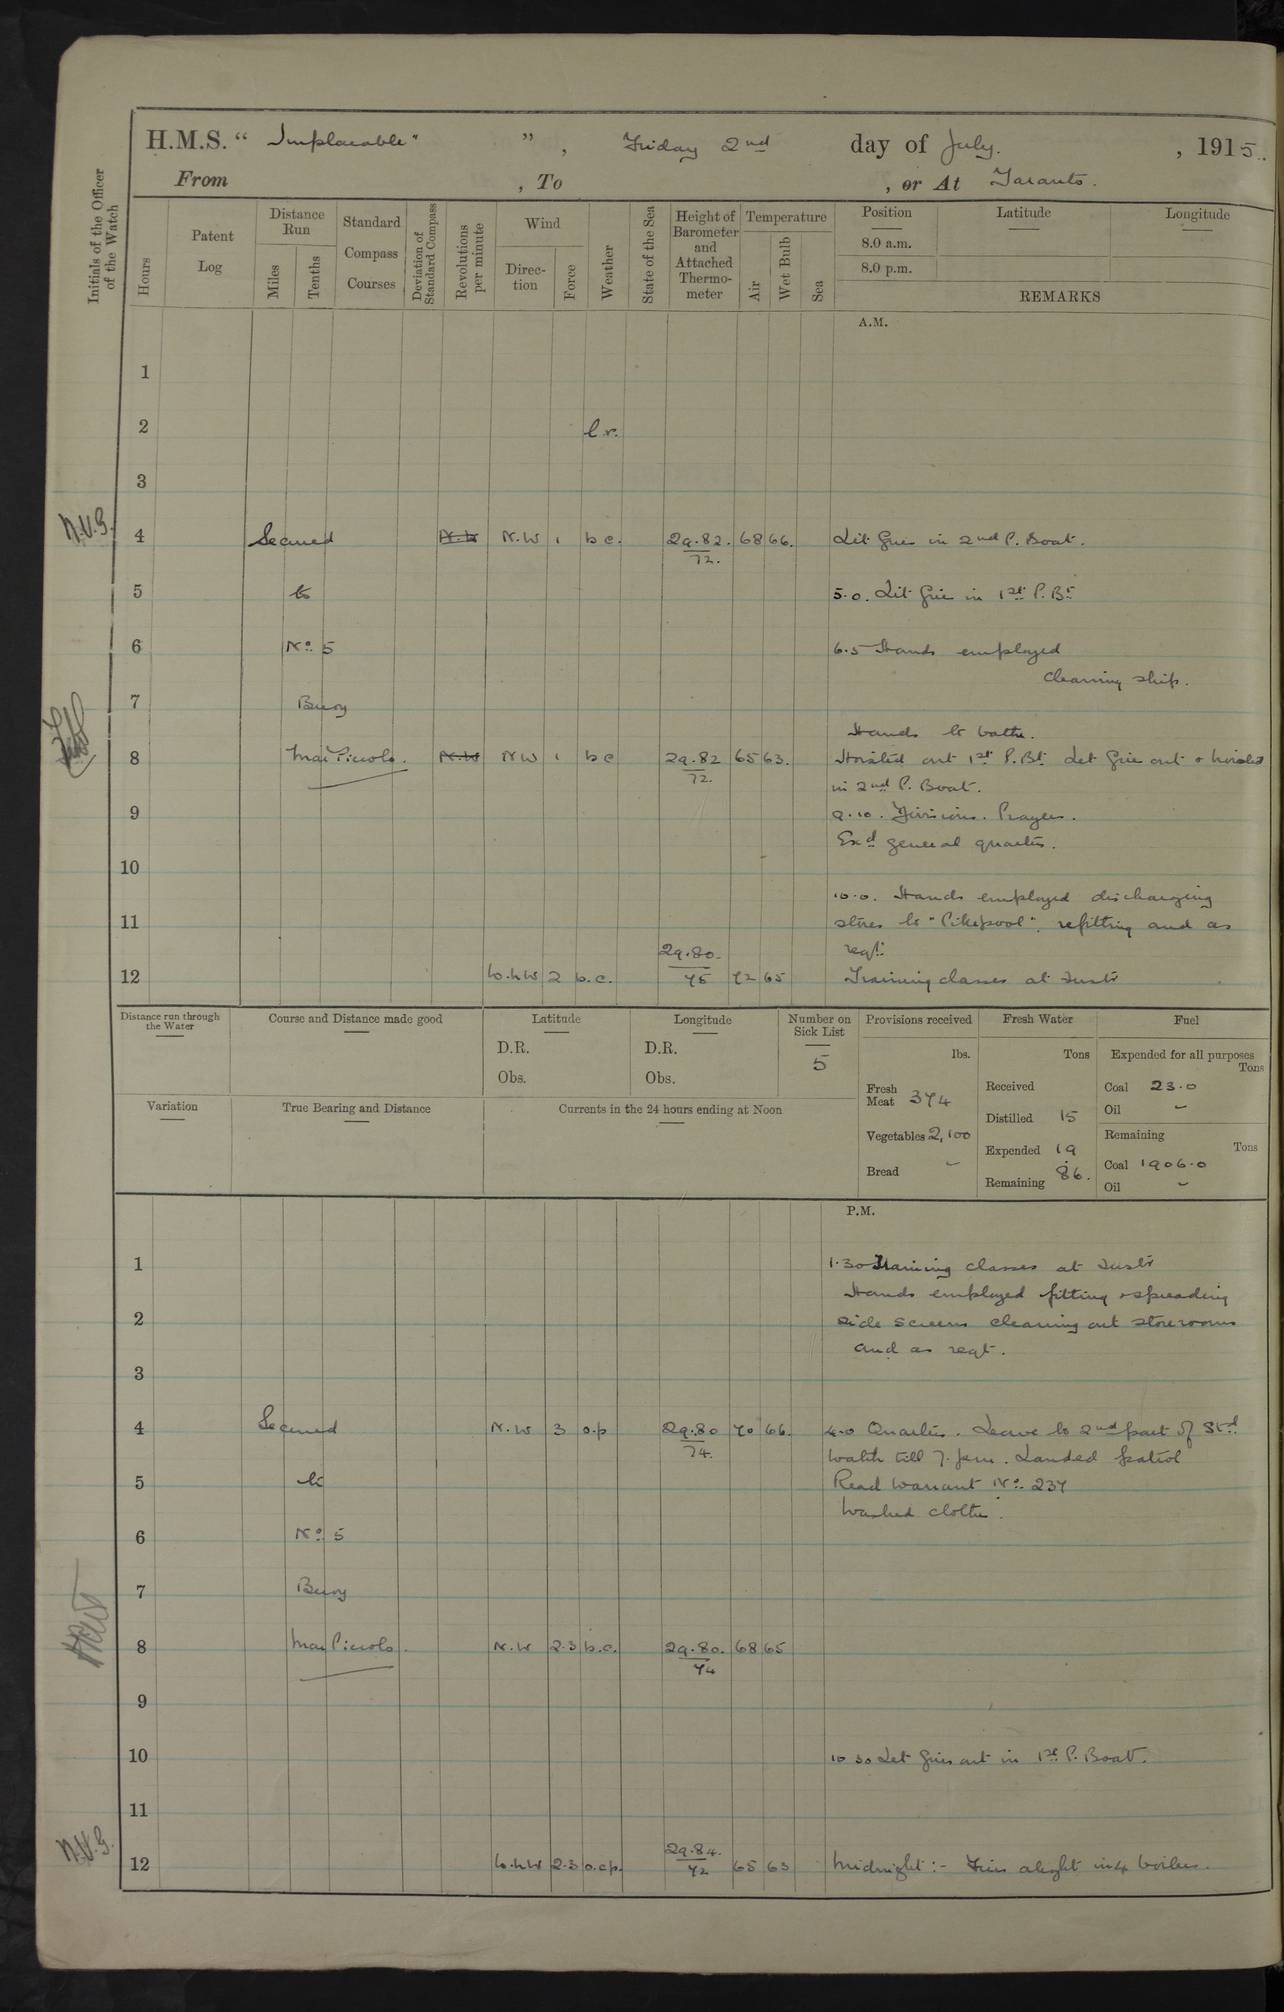 H.M.S. " Implacable" ", Friday 2nd day of July. , 1915.
From , To , or At Taranto.
Initials of the Officer of the Watch
Hours
Patent Log
Distance Run
Miles
Tenths
Standard Compass Courses
Deviation of Standard Compass
Revolutions per minute
Wind
Direction
Force
Weather
State of the Sea
Height of Barometer and Attached Thermometer
Temperature
Air
Wet Bulb
Sea
Position Latitude Longitude
8.0 a.m.
8.0 p.m.
REMARKS
A.M.
1
2 l.r.
3
N.V.G. 4 Secured N.W N.W 1 b c. 29.82. 68 66. Lit fires in 2nd P. Boat.
72.
5 to 5.0. Lit fire in 1st P. Bt
6 No. 5 6.5 Hands employed
cleaning ship.
7 Buoy
Hands to bathe.
8 Mar Piccolo. N.W N W 1 b c 29.82 65 63. Hoisted out 1st P. Bt. Let fire out & hoisted
72. in 2nd P. Boat.
9 9.10. Divisions. Prayers.
Exd general quarters.
10
10.0. Hands employed discharging
11 stores to "Pikepool". refitting and as
29.80. reqt.
12 W.N.W 2 b.c. 75 72 65 Training classes at Instr
Distance run through the Water
Course and Distance made good
Latitude
D.R.
Obs.
Longitude
D.R.
Obs.
Number on Sick List
5
Provisions received
lbs.
Fresh Meat 374
Vegetables 2,100
Bread -
Fresh Water
Tons
Received
Distilled 15
Expended 19
Remaining 86.
Fuel
Expended for all purposes
Tons
Coal 23.0
Oil -
Remaining
Tons
Coal 1906.0
Oil -
Variation
True Bearing and Distance
Currents in the 24 hours ending at Noon
P.M.
1 1.30 Training classes at Instr
Hands employed fitting & spreading
2 side screens cleaning out storerooms
and as reqt.
3
4 Secured N.W 3 o.p 29.80 70 66. 4.0 Quarters. Leave to 2nd part of Stbd
74. Watch till 7. p.m. Landed patrol
5 to Read Warrant No. 237
Washed clothes.
6 No. 5
7 Buoy
8 Mar Piccolo. N.W 2.3 b.c. 29.80. 68 65
74
9
10 10 30 Let fires out in 1st P. Boat.
11
N.V.G. 29.84.
12 W.N.W 2.3 o.c.p. 72 65 63 Midnight :- Fires alight in 4 boilers.